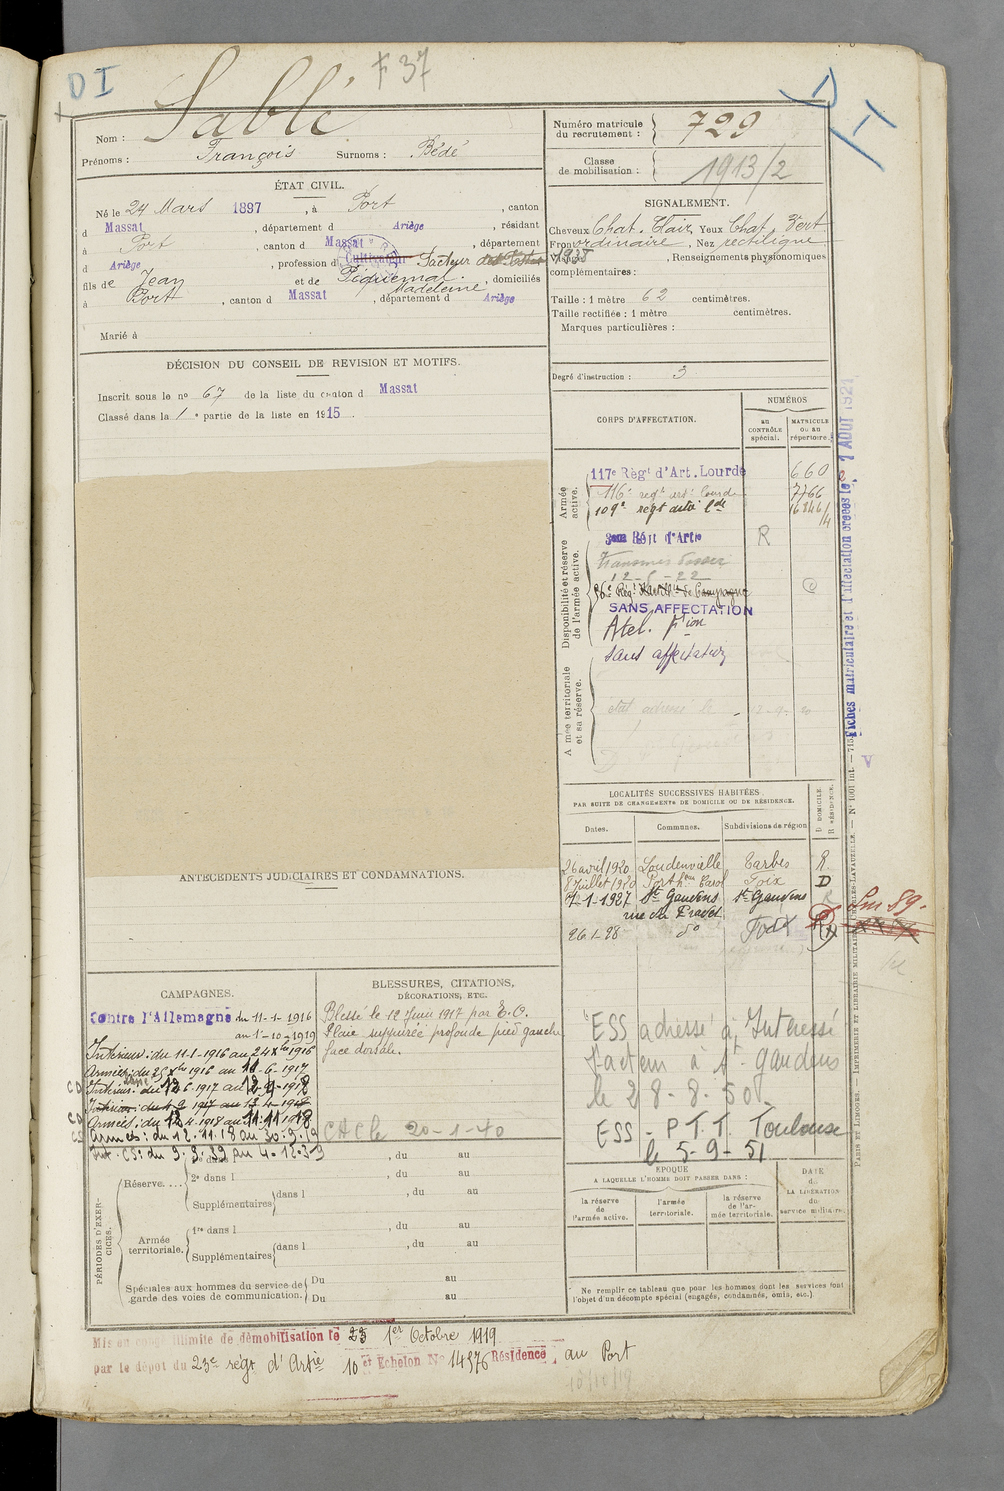 D I
F 37
D I
Nom : Sablé
Prénoms : François Surnoms : Bédé
Numéro matricule du recrutement : 729
Classe de mobilisation : 1913/2
ÉTAT CIVIL.
Né le 24 Mars 1897, à Port, canton
d Massat, département d Ariège, résidant
à Port, canton d Massat, département
d Ariège, profession d Cultivateur Facteur
fils de Jean et de Piquemal Madeleine, domiciliés
à Port, canton d Massat, département d Ariège
Marié à
SIGNALEMENT.
Cheveux Chat. Clair, Yeux Chat. Vert
Front ordinaire, Nez rectiligne
Visage, Renseignements physionomiques
complémentaires :
Taille : 1 mètre 62 centimètres.
Taille rectifiée : 1 mètre centimètres.
Marques particulières :
Degré d'instruction : 3
DÉCISION DU CONSEIL DE REVISION ET MOTIFS.
Inscrit sous le n° 67 de la liste du canton d Massat
Classé dans la 1e partie de la liste en 1915
CORPS D'AFFECTATION.
NUMÉROS
au CONTRÔLE spécial.
MATRICULE ou au répertoire.
Armée active.
117e Règt d'Art. Lourde 660
116e regt art. lourde 7766
109e regt artie lde
Disponibilité et réserve de l'armée active.
R
12-6-22
SANS AFFECTATION
Atel. fion
Sans affectation
Armée territoriale et sa réserve.
Fiches matriculaire et d'affectation créées le 7 AOUT 1921
LOCALITÉS SUCCESSIVES HABITÉES
PAR SUITE DE CHANGEMENTS DE DOMICILE OU DE RÉSIDENCE.
Dates. Communes. Subdivisions de région
D DOMICILE. R RÉSIDENCE.
26 avril 1920 Loudenvielle Tarbes R.
8 Juillet 1920 Port Foix D
7-1-1927 St Gaudens St Gaudens
rue du Pradet
26-1-28 do Foix
ANTÉCÉDENTS JUDICIAIRES ET CONDAMNATIONS.
CAMPAGNES.
Contre l'Allemagne du 11-1-1916
au 1-10-1919
Intérieur : du 11-1-1916 au 24 Xbre 1916
Armées : du 25 Xbre 1916 au 11-6-1917
Armées : du 12 4 1918 au 11.11.1918
Armées : du 12.11.18 au 30.9.19
BLESSURES, CITATIONS,
DÉCORATIONS, ETC.
Blessé le 12 Juin 1917 par E.O.
Plaie suppurée profonde pied gauche
face dorsale.
20-1-40
ESS adressé à l'Intéressé
facteur à St Gaudens
le 28-8-50.
ESS - P.T.T. Toulouse
le 5-9-51
PÉRIODES D'EXERCICES.
Réserve....
2e dans l , du au
Supplémentaires dans l , du au
Armée territoriale.
1re dans l , du au
Supplémentaires dans l , du au
Spéciales aux hommes du service de garde des voies de communication.
Du au
Du au
ÉPOQUE
A LAQUELLE L'HOMME DOIT PASSER DANS :
la réserve de l'armée active.
l'armée territoriale.
la réserve de l'armée territoriale.
DATE de LA LIBÉRATION du service militaire.
Ne remplir ce tableau que pour les hommes dont les services font l'objet d'un décompte spécial (engagés, condamnés, omis, etc.).
Mis en congé illimité de démobilisation le 1er Octobre 1919
par le dépôt du 23e regt d'Artie 10 et Echelon N° 14576 Résidence, au Port